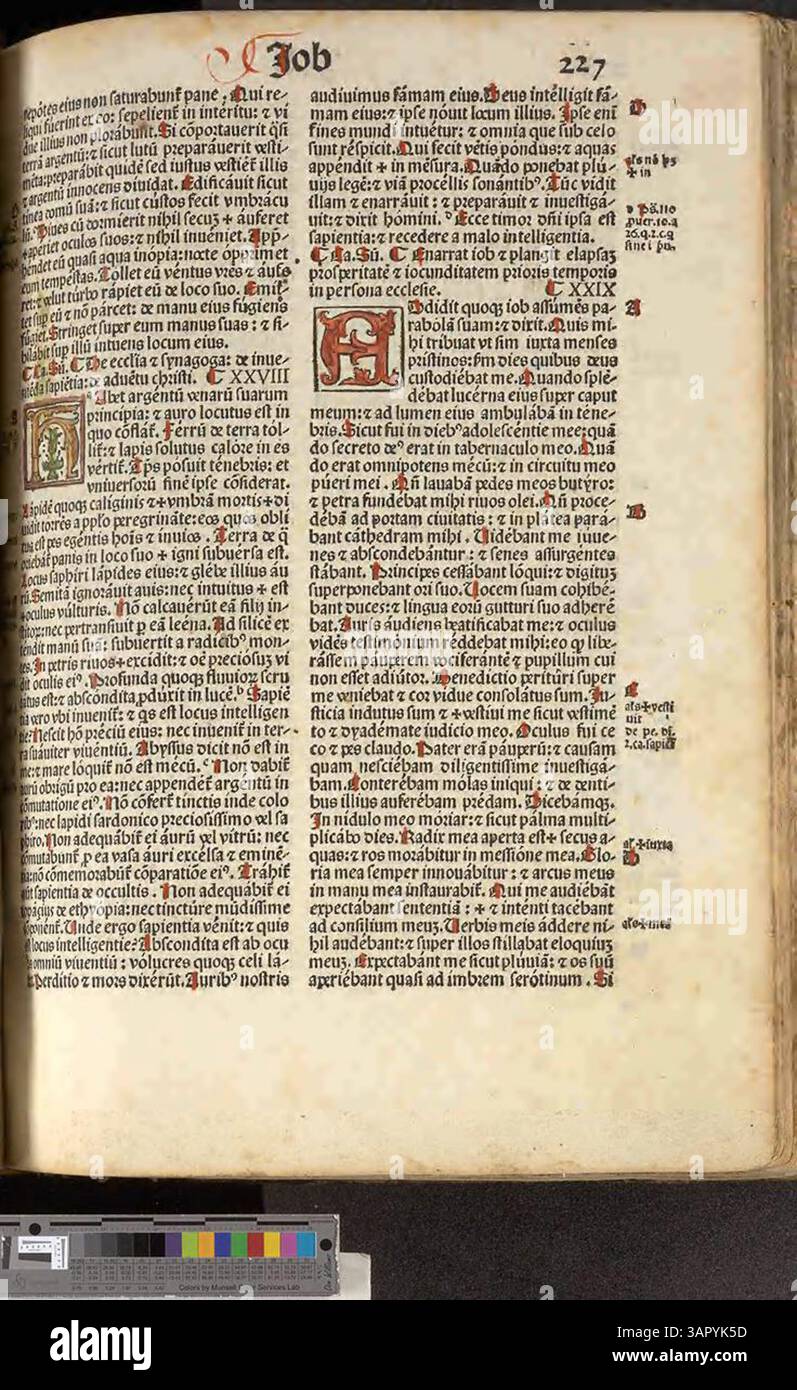 Job
227
nepótes eius non saturabunt̃ pane. Qui re-
liqui fuerint ex eo: sepelient̃ in interitu: ⁊ vi
due illius non plorabunt. Si cõportauerit q̃si
terrã argentũ: ⁊ sicut lutũ preparauerit vesti-
mẽta: preparabit quidẽ sed iustus vestiet̃ illis
⁊ argentũ innocens diuidat. Edificáuit sicut
tinea domũ suã: ⁊ sicut cústos fecit vmbracu
lũ. Diues cũ dormierit nihil secuꝫ + áuferet
+aperiet oculos suos: ⁊ nihil inuéniet. App̃-
hendet eũ quasi aqua inópia: nocte ópprimet
eum tempestas. Tollet eũ véntus vrẽs ⁊ aufe
ret: ⁊ velut túrbo rápiet eũ de loco suo. Emit-
tet sup eũ ⁊ nõ párcet: de manu eius fúgiens
fúgiet. Stringet super eum manus suas: ⁊ si-
bilábit sup illũ intuens locum eius.
¶ Ca. Sũ. ¶ De ecclĩa ⁊ synagoga: de inue-
niẽda sapiẽtia: de aduẽtu christi. ¶ XXVIII
Abet argẽtũ venarũ suarum
principia: ⁊ auro locutus est in
quo cõflat̃. Ferrũ de terra tól-
lit̃: ⁊ lapis solutus calóre in es
vértit̃. Tp̃s pósuit ténebris: et
vniuersorũ finẽ ipse cõsiderat.
Lápidẽ quoqꝫ caliginis ⁊ +vmbrã mórtis + di
uidit torrẽs a pplo peregrinãte: eos quos obli
tus est pes egẽntis hoĩs ⁊ inuios. Terra de q̃
oriebat̃ panis in loco suo + igni subuersa est.
Locus saphiri lápides eius: ⁊ glébe illius áu
rũ. Semitã ignoráuit auis: nec intuitus + est
+oculus vúlturis. Nõ calcauérũt eã filij in-
stitorꝫ: nec pertransiuit p eã leéna. Ad silicẽ ex
tendit manũ suã: subuertit a radicibꝰ mon-
tes. In petris riuos + excidit: ⁊ oẽ preciósuꝫ vi
dit oculis eiꝰ. Profunda quoqꝫ fluuiorꝫ scru
tatus est: ⁊ abscóndita pdúxit in lucẽ. ᵇ Sapiẽ
tia vero vbi inuenit̃: ⁊ qs est locus intelligen
tie? Nescit hõ préciũ eius: nec inuenit̃ in ter-
ra suáuiter viuẽntiũ. Abyssus dicit nõ est in
me: ⁊ mare lóquit̃ nõ est mécũ. ᶜ Non dabit̃
aurũ obrigũ pro ea: nec appendet̃ argẽtũ in
cõmutatione eiꝰ. Nõ cõfert̃ tinctis inde colo
ribꝰ: nec lapidi sardonico preciosissimo vel sa
phiro. Non adequábit̃ ei áurũ vel vítrũ: nec
cõmutabunt̃ p ea vasa áuri excélsa ⁊ eminẽ-
tia: nõ cõmemorabũt̃ cõparatiõe eiꝰ. Tráhit̃
aũt sapientia de occultis. Non adequábit̃ ei
topázius de ethyópia: nec tinctúre mũdissime
cõponẽt̃. Unde ergo sapientia vénit: ⁊ quis
ẽ locus intelligentie? Abscóndita est ab ocu
lis omniũ viuentiũ: vólucres quoqꝫ celi la-
tet. Perditio ⁊ mors dixérũt. Auribꝰ nostris
audíuimus fámam eius. Deus intélligit fã-
mam eius: ⁊ ipse nóuit locum illius. Ipse enĩ
fines mundi intuétur: ⁊ omnia que sub celo
sunt réspicit. Qui fecit vẽtis põndus: ⁊ aquas
appéndit + in mẽsura. Quãdo ponebat plu-
uijs legẽ: ⁊ viã procéllis sonántibꝰ. Tũc vidit
illam ⁊ enarráuit: ⁊ preparáuit ⁊ inuestigá-
uit: ⁊ dixit hómini. ᵇ Ecce timor dñi ipsa est
sapiẽntia: ⁊ recedere a malo intelligentia.
¶ Ca. Sũ. ¶ Enarrat iob ⁊ plangit elapsaꝫ
prosperitatẽ ⁊ iocunditatem prioris temporis
in persona ecclesie. ¶ XXIX
A Ddidit quoqꝫ iob assúmẽs pa-
rabolã suam: ⁊ dixit. Quis mi-
hi tribuat vt sim iuxta menses
pristinos: s̃m dies quibus deus
custodiébat me. Quando splẽ-
débat lucérna eius super caput
meum: ⁊ ad lumen eius ambulábã in téne-
bris. Sicut fui in diebꝰ adolescéntie mee: quã
do secreto deꝰ erat in tabernaculo meo. Quã
do erat omnipotens mécũ: ⁊ in circuitu meo
púeri mei. Qñ lauabã pedes meos butyro:
⁊ petra fundébat mihi riuos ólei. Qñ proce-
débã ad portam ciuitatis: ⁊ in plátea pará-
bant cáthedram mihi. Uidébant me iúue-
nes ⁊ abscondebántur: ⁊ senes assurgéntes
stábant. Principes cessábant lóqui: ⁊ dígituꝫ
superponebant ori suo. Uocem suam cohibé-
bant duces: ⁊ lingua eorũ gútturi suo adheré
bat. Auris áudiens beatificabat me: ⁊ oculus
vidẽs testimónium reddébat mihi: eo q̃ libe-
rássem páuperem vociferántẽ ⁊ pupillum cui
non esset adiútor. Benedictio peritúri súper
me veniebat ⁊ cor vidue consolátus sum. Iu-
sticia indutus sum ⁊ +vestiui me sicut vestimẽ
to ⁊ dyadémate iudicio meo. Oculus fui ce
co ⁊ pes claudo. Pater erã páuperũ: ⁊ causam
quam nesciébam diligentissime inuestigá-
bam. Conterébam mólas iniqui: ⁊ de denti-
bus illius auferébam prédam. Dicebámqꝫ.
In nídulo meo móriar: ⁊ sicut palma multi-
plicábo dies. Radix mea aperta est + secus a-
quas: ⁊ ros morábitur in messióne mea. Glo-
ria mea semper innouábitur: ⁊ arcus meus
in manu mea instaurabit̃. Qui me audiébãt
expectábant sententiã: + ⁊ inténti tacébant
ad consilium meuꝫ. Uerbis meis áddere ni-
hil audébant: ⁊ super illos stillábat eloquiuꝫ
meuꝫ. Expectabánt me sicut plúuiã: ⁊ os suũ
aperiébant quasi ad imbrem serótinum. Si
D
als nõ hꝫ
+ in
ᵇ Ps. 110
puer. 10. a
A
B
C
als + vesti
uit
als + iuxta
D
als + mea
Colors by Munsell Color Services Lab
alamy
Image ID: 3APYK5D
www.alamy.com